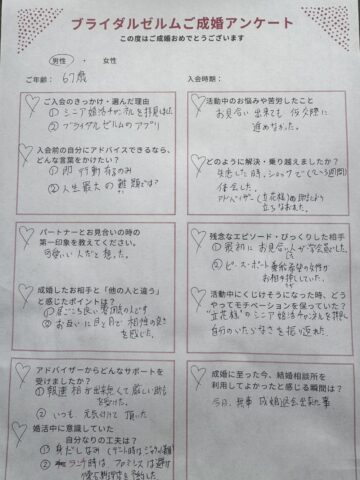 ブライダルゼルムご成婚アンケート
この度はご成婚おめでとうございます
男性 ・ 女性
ご年齢: 67歳
入会時期:
ご入会のきっかけ・選んだ理由
① シニア婚活チャンネルを拝見した
② ブライダルゼルムのアプリ
入会前の自分にアドバイスできるなら、
どんな言葉をかけたい?
① 即 行動有るのみ
② 人生最大の難題では?
パートナーとお見合いの時の
第一印象を教えてください。
可愛い人だと想った。
成婚したお相手と「他の人と違う」
と感じたポイントは?
① 居ごこち良い雰囲気の人です
② お互いに目と目で相性の良さ
を感じた。
アドバイザーからどんなサポートを
受けましたか?
① 報連相が出来無くて厳しい助言
を受けた。
② いつも 元気付けて 頂いた
婚活中に意識していた
自分なりの工夫は?
① 身だしなみ
② ランチ時は
は避け
活動中のお悩みや苦労したこと
お見合い出来ても 仮交際に
進めなかった。
どのように解決・乗り越えましたか?
失恋した時、ショックで(2~3週間)
休会した。
アドバイザー(立花様)の助言により
立ちなおれた。
残念なエピソード・びっくりした相手
① 最初にお見合い
② ピース・ボート乗船希望の女性が
お相手
活動中にくじけそうになった時、どう
やってモチベーションを保っていた?
"立花様"のシニア婚活チャンネルを拝見し
自分のいたらなさを振り返れた
成婚に至った今、結婚相談所を
利用してよかったと感じる瞬間は?
今日、無事 成婚退会出来た事